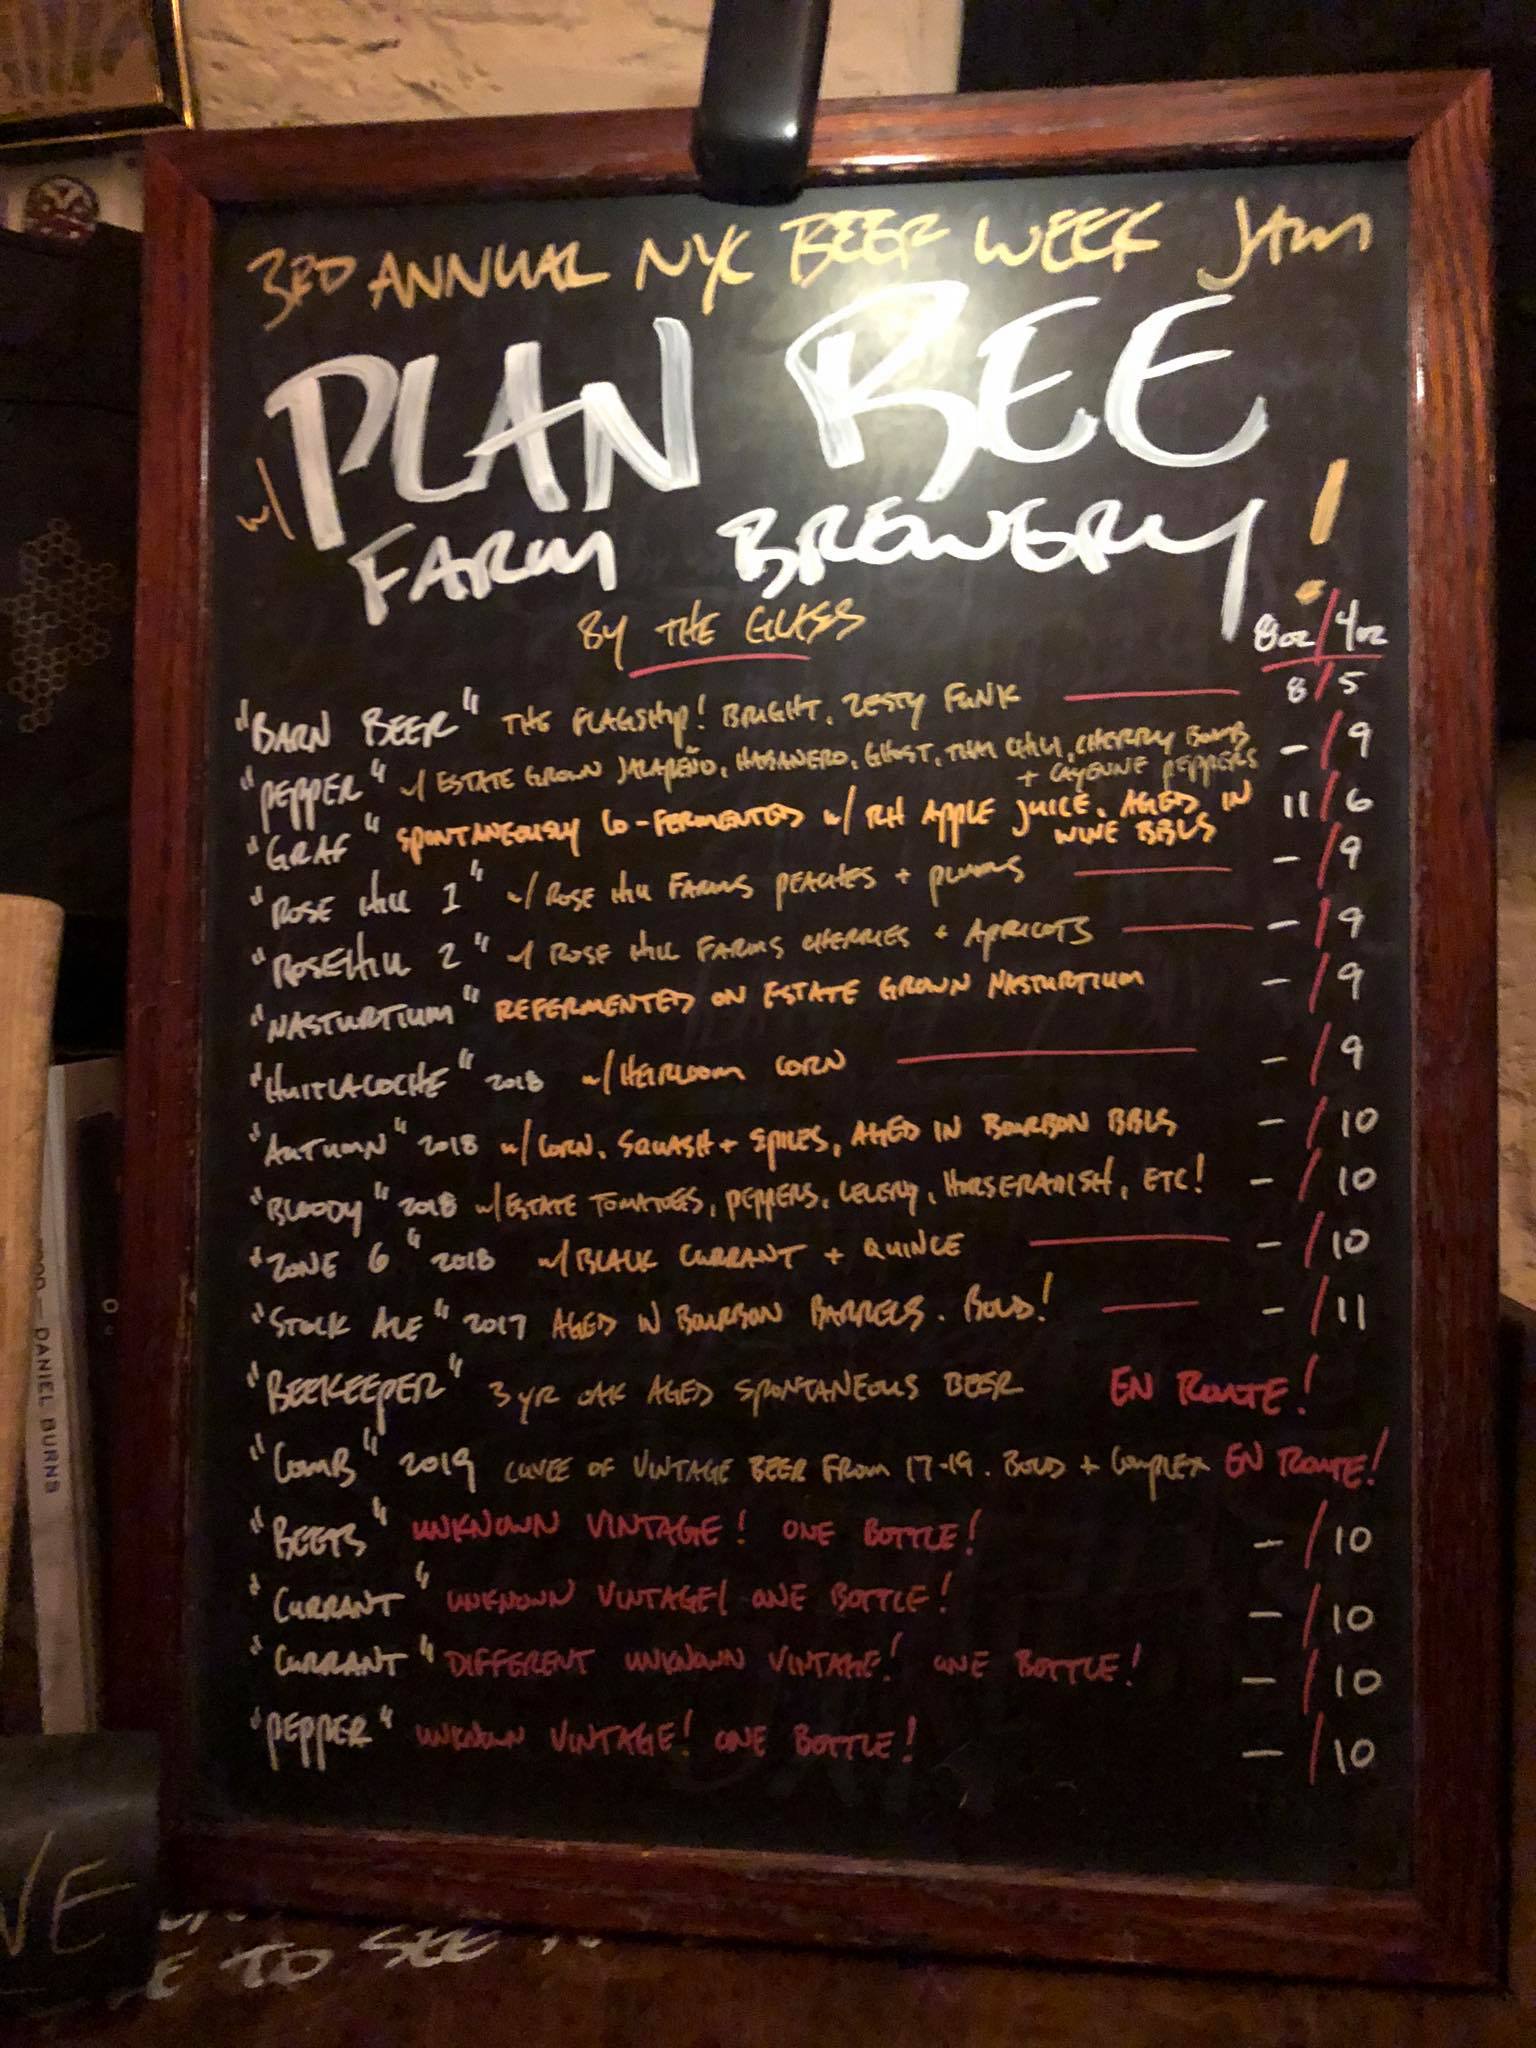 3RD ANNUAL NYC BEER WEEK JAM
w/ PLAN BEE
FARM BREWERY!
BY THE GLASS
8oz/4oz
"BARN BEER" THE FLAGSHIP! BRIGHT, ZESTY FUNK — 8/5
"PEPPER" w/ ESTATE GROWN JALAPEÑO, HABANERO, GHOST, THAI CHILI, CHERRY BOMB - / 9
+ CAYENNE PEPPERS
"GRAF" SPONTANEOUSLY CO-FERMENTED w/ RH APPLE JUICE. AGED IN 11/6
WINE BBLS
"ROSE HILL 1" w/ ROSE HILL FARMS PEACHES + PLUMS — - / 9
"ROSEHILL 2" w/ ROSE HILL FARMS CHERRIES + APRICOTS — - / 9
"NASTURTIUM" REFERMENTED ON ESTATE GROWN NASTURTIUM - / 9
"HUITLACOCHE" 2018 w/ HEIRLOOM CORN — - / 9
"AUTUMN" 2018 w/ CORN, SQUASH + SPICES, AGED IN BOURBON BBLS - / 10
"BLOODY" 2018 w/ ESTATE TOMATOES, PEPPERS, CELERY, HORSERADISH, ETC! - / 10
"ZONE 6" 2018 w/ BLACK CURRANT + QUINCE — - / 10
"STOCK ALE" 2017 AGED IN BOURBON BARRELS. BOLD! — - / 11
"BEEKEEPER" 3 YR OAK AGED SPONTANEOUS BEER EN ROUTE!
"COMB" 2019 CUVEE OF VINTAGE BEER FROM 17-19. BOLD + COMPLEX EN ROUTE!
"BEETS" UNKNOWN VINTAGE! ONE BOTTLE! - / 10
"CURRANT" UNKNOWN VINTAGE! ONE BOTTLE! - / 10
"CURRANT" DIFFERENT UNKNOWN VINTAGE! ONE BOTTLE! - / 10
"PEPPER" UNKNOWN VINTAGE! ONE BOTTLE! - / 10
DANIEL BURNS
TO SEE